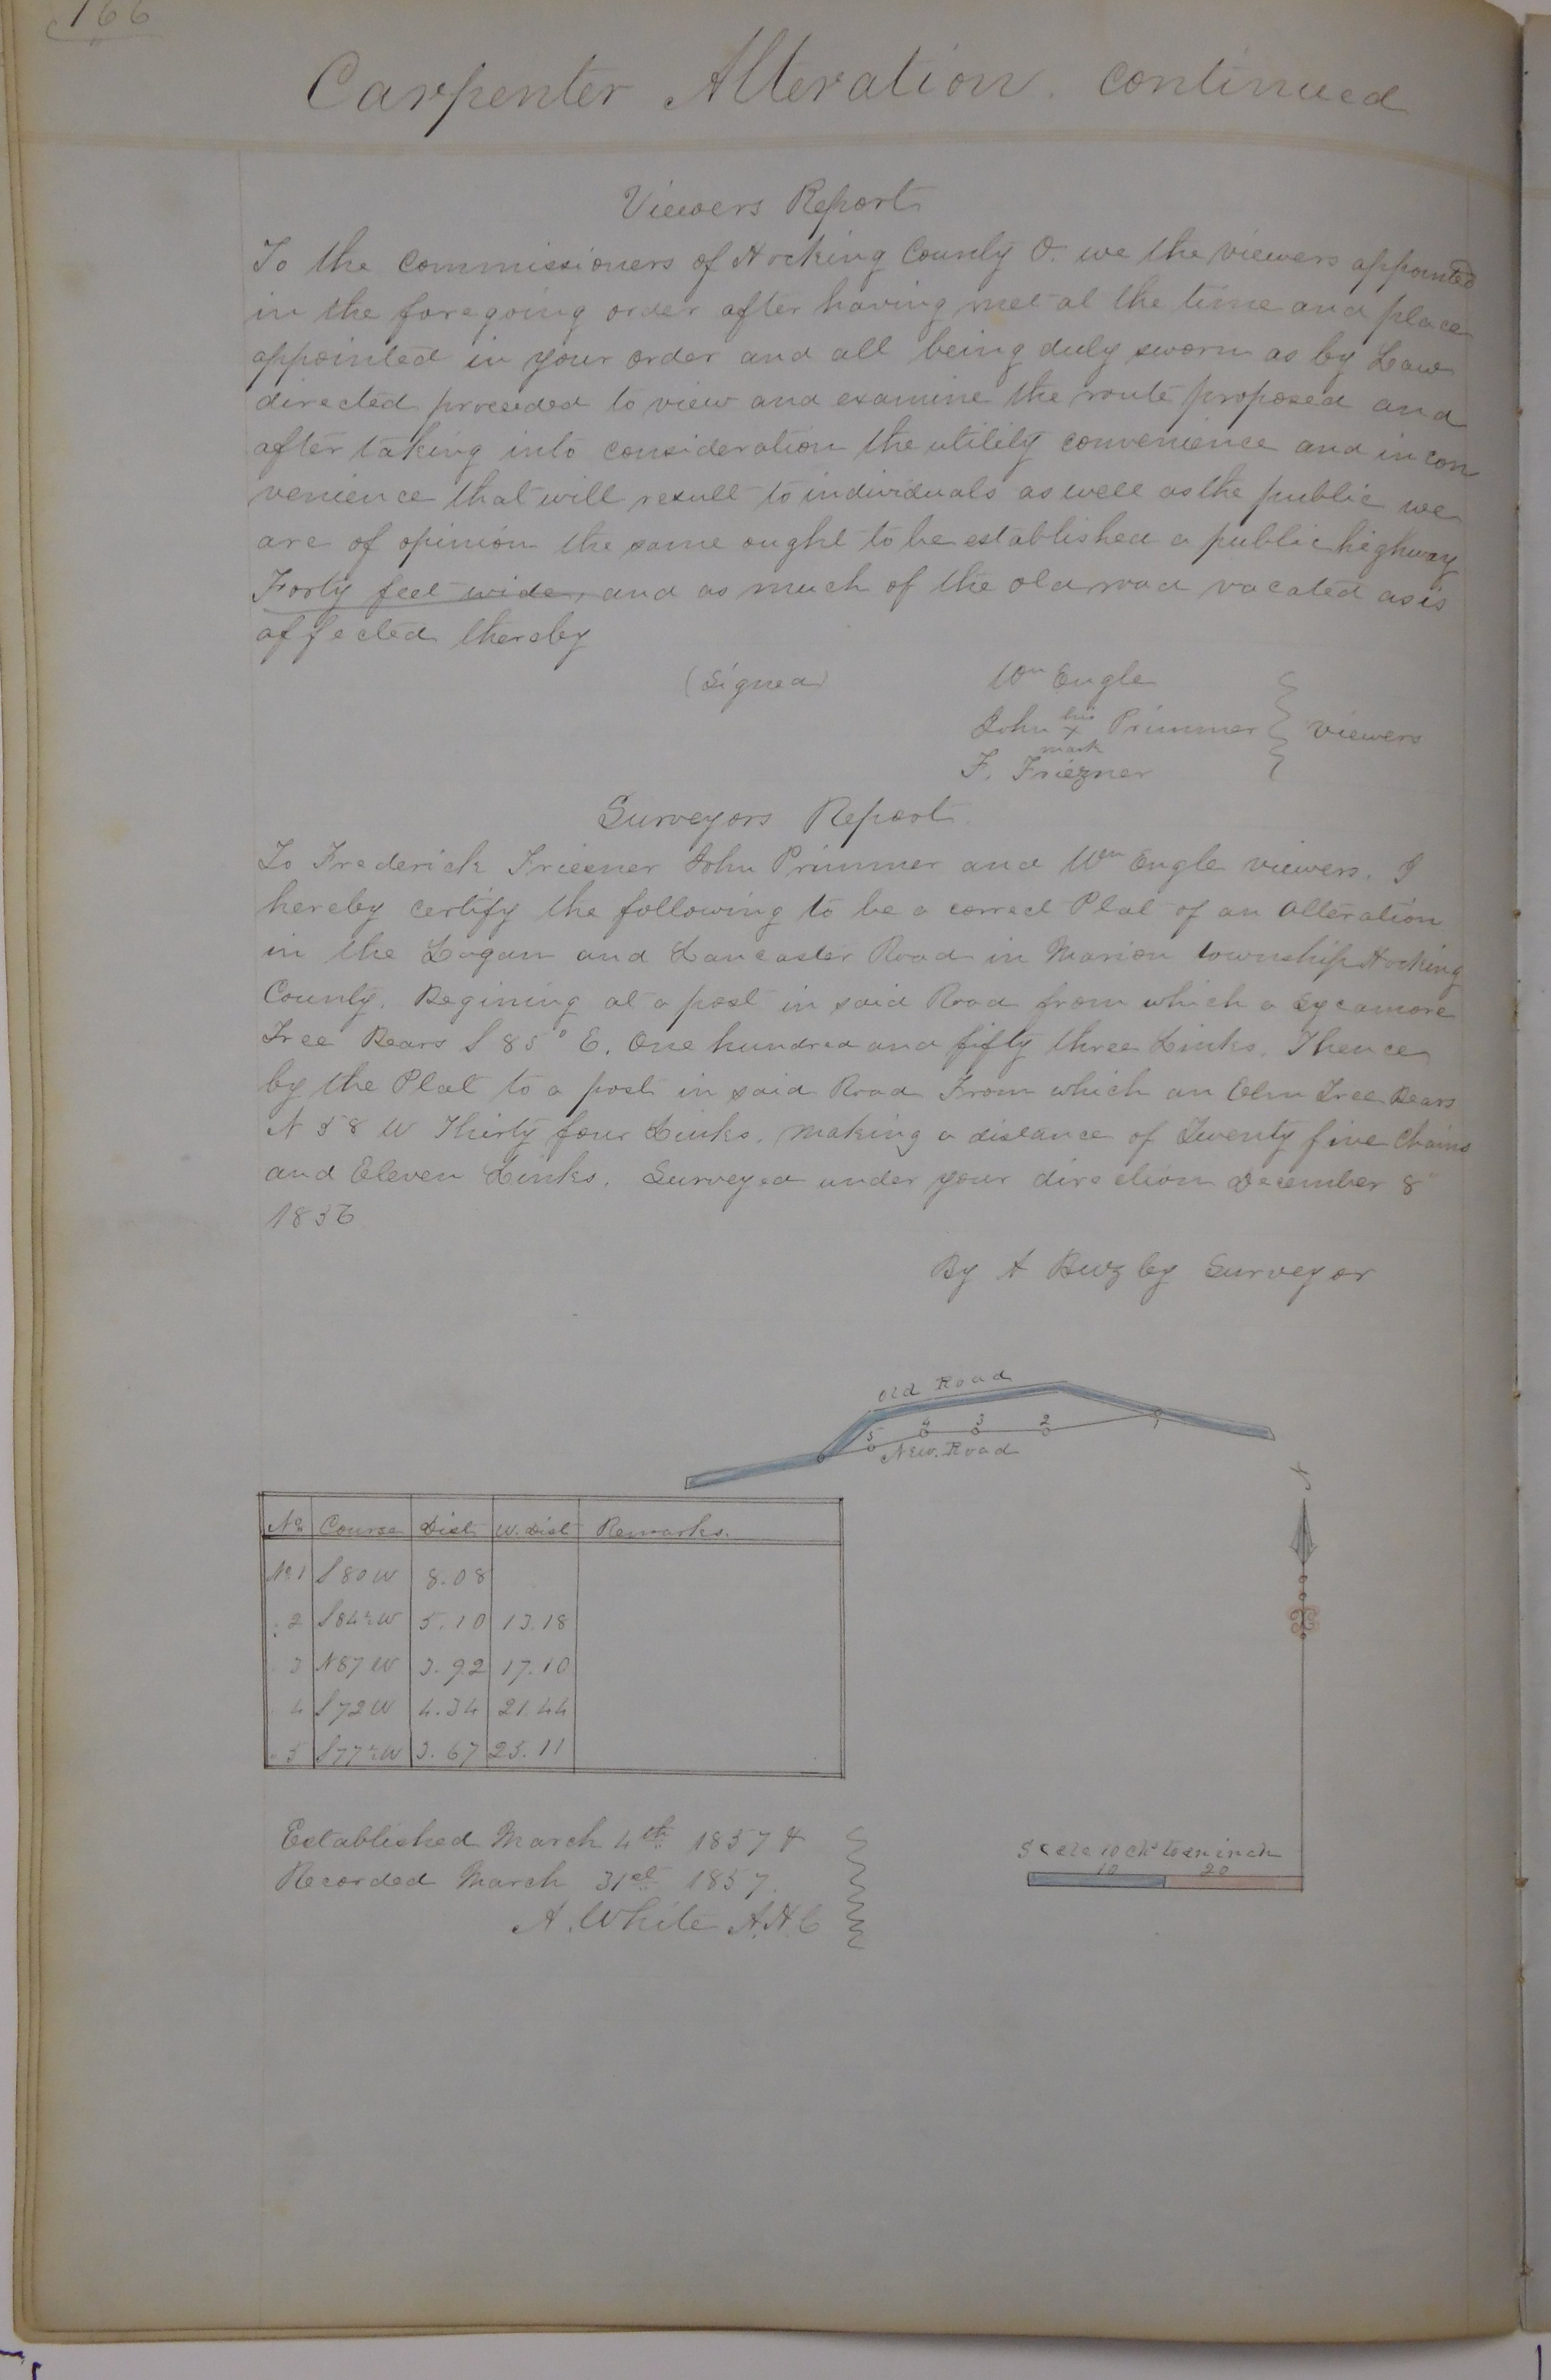 166
Carpenter Alteration. continued
Viewers Report
To the Commissioners of Hocking County O. we the viewers appointed
in the foregoing order after having met at the time and place
appointed in your order and all being duly sworn as by Law
directed proceeded to view and examine the route proposed and
after taking into consideration the utility convenience and incon
venience that will result to individuals as well as the public we
are of opinion the same ought to be established a public highway
Forty feet wide, and as much of the old road vacated as is
affected thereby
(Signed)
Wm Engle
John his x mark Primmer
F. Friezner
viewers
Surveyors Report.
To Frederick Friesner John Primmer and Wm Engle viewers. I
hereby certify the following to be a correct Plat of an Alteration
in the Logan and Lancaster Road in Marion township Hocking
County. Begining at a post in said Road from which a Sycamore
Tree Bears S 85° E. One hundred and fifty three Links. Thence
by the Plat to a post in said Road From which an Elm Tree Bears
N 58 W Thirty four Links. making a distance of Twenty five Chains
and Eleven Links. Surveyed under your direction December 8"
1856
By A Buzby Surveyor
Old Road
5 4 3 2 1
New. Road
No. Course Dist W. Dist Remarks.
No. 1 S80W 8.08
" 2 S84½W 5.10 13.18
" 3 N87W 3.92 17.10
" 4 S72W 4.34 21.44
" 5 S77½W 3.67 25.11
N
Scale 10 chs to an inch
10 20
Established March 4th 1857 &
Recorded March 31st 1857.
A. White A.H.C